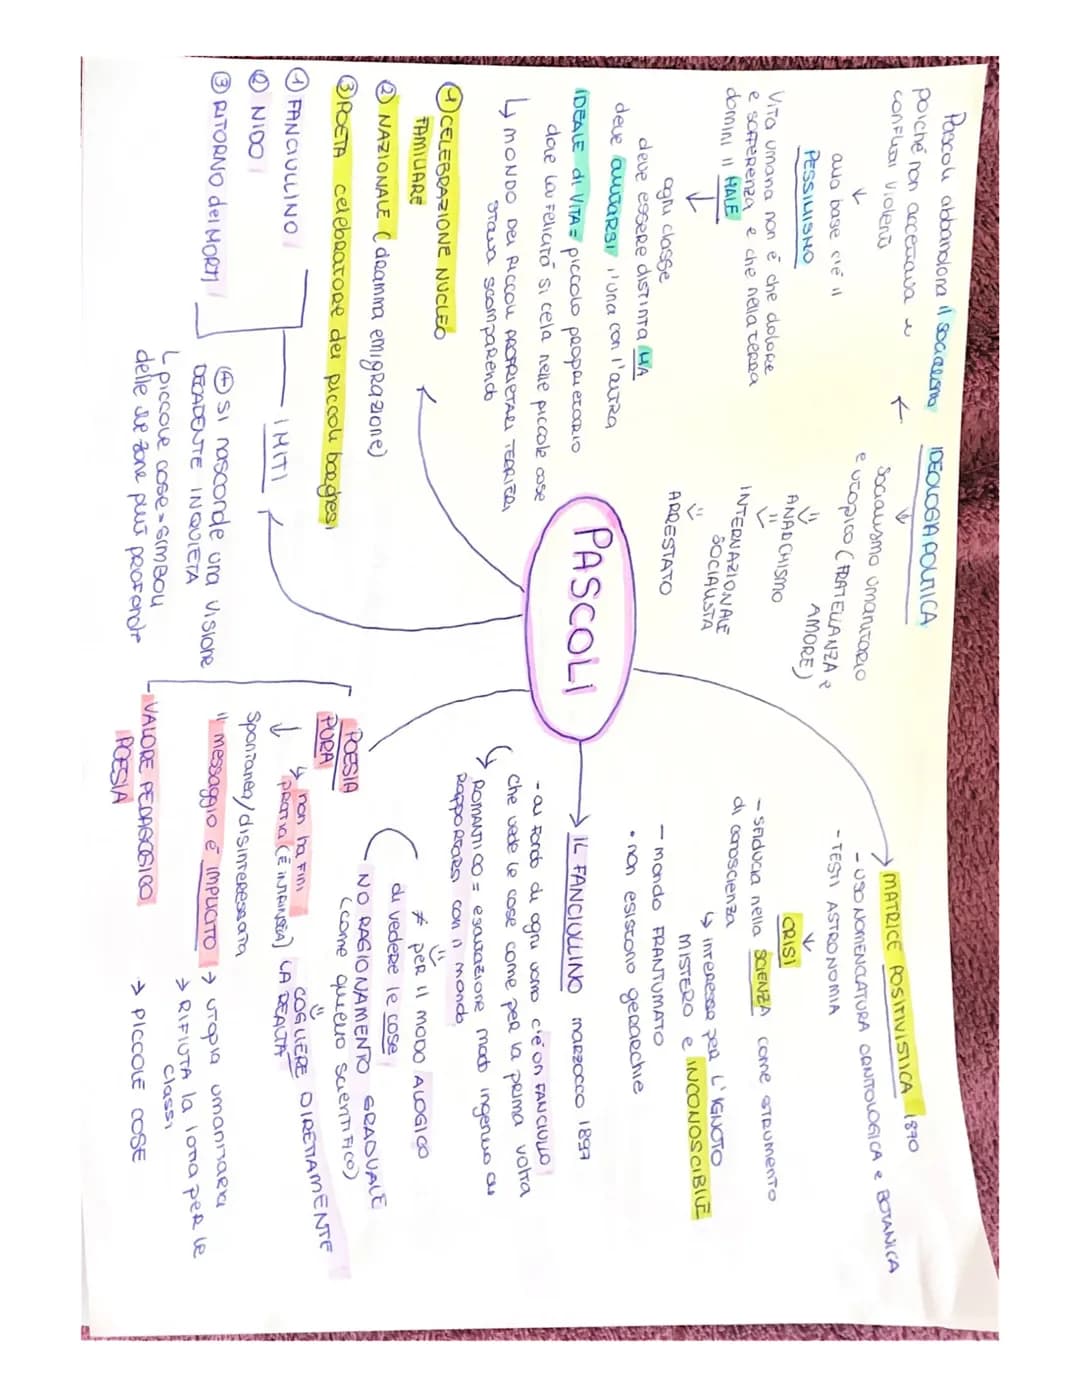 PASCOLI
IDEOLOGIA POLITICA
Socialismo umanitario
e utopico (FRATELLANZA e
AMORE)
ANARCHISMO
INTERNAZIONALE
SOCIALISTA
ARRESTATO
Pascoli abbandona il socialismo
poiché non accettava i
conflitti violenti
alla base c'è il
PESSIMISMO
Vita umana non é che dolore
e sofferenza e che nella terra
domini il MALE
ogni classe
deve essere distinta MA
deve aiutarsi l'una con l'altra
IDEALE di VITA = piccolo proprietario
dove la felicità si cela nelle piccole cose
↳ MONDO DEI PICCOLI PROPRIETARI TERRIERI
stava scomparendo
① CELEBRAZIONE NUCLEO
FAMILIARE
② NAZIONALE (dramma emigrazione)
③ POETA celebratore dei piccoli borghesi
I MITI
① FANCIULLINO
② NIDO
③ RITORNO dei MORTI
④ SI nasconde una visione
DECADENTE INQUIETA
↳ piccole cose = SIMBOLI
delle sue zone più profonde
MATRICE POSITIVISTICA 1870
- USO NOMENCLATURA ORNITOLOGICA e BOTANICA
- TESTI ASTRONOMIA
CRISI
- sfiducia nella SCIENZA come STRUMENTO
di conoscienza
↳ interesse per L'IGNOTO
MISTERO e INCONOSCIBILE
- mondo FRANTUMATO
• non esistono gerarchie
IL FANCIULLINO marzocco 1897
- al fondo di ogni uomo c'è un FANCIULLO
che vede le cose come per la prima volta
↳ ROMANTICO = esaltazione modo ingenuo di
RAPPORTARSI con il mondo
≠ per il modo ALOGICO
di vedere le cose
NO RAGIONAMENTO GRADUALE
(come quello scientifico)
COGLIERE DIRETTAMENTE
LA REALTÀ
POESIA
PURA
↳ non ha fini
pratici (È INTRINSECA)
spontanea/disinteressata
il messaggio é IMPLICITO → utopia umanitaria
→ RIFIUTA la lotta per le
classi
VALORE PEDAGOGICO
POESIA
→ PICCOLE COSE